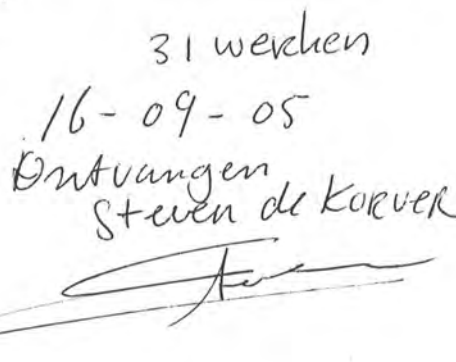 31 werken
16-09-05
Ontvangen
Steven de KORVER